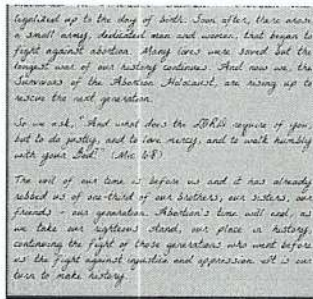 legalized up to the day of birth. Soon after, there arose
a small army, dedicated men and women, that began to
fight against abortion. Many lives were saved but the
longest war of our history continues. And now we, the
Survivors of the Abortion Holocaust, are rising up to
rescue the next generation.
So we ask, "And what does the LORD require of you,
but to do justly, and to love mercy, and to walk humbly
with your God?" (Mic. 6:8)
The evil of our time is before us and it has already
robbed us of one-third of our brothers, our sisters, our
friends - our generation. Abortion's time will end, as
we take our righteous stand, our place in history,
continuing the fight of those generations who went before
us the fight against injustice and oppression. It is our
turn to make history.